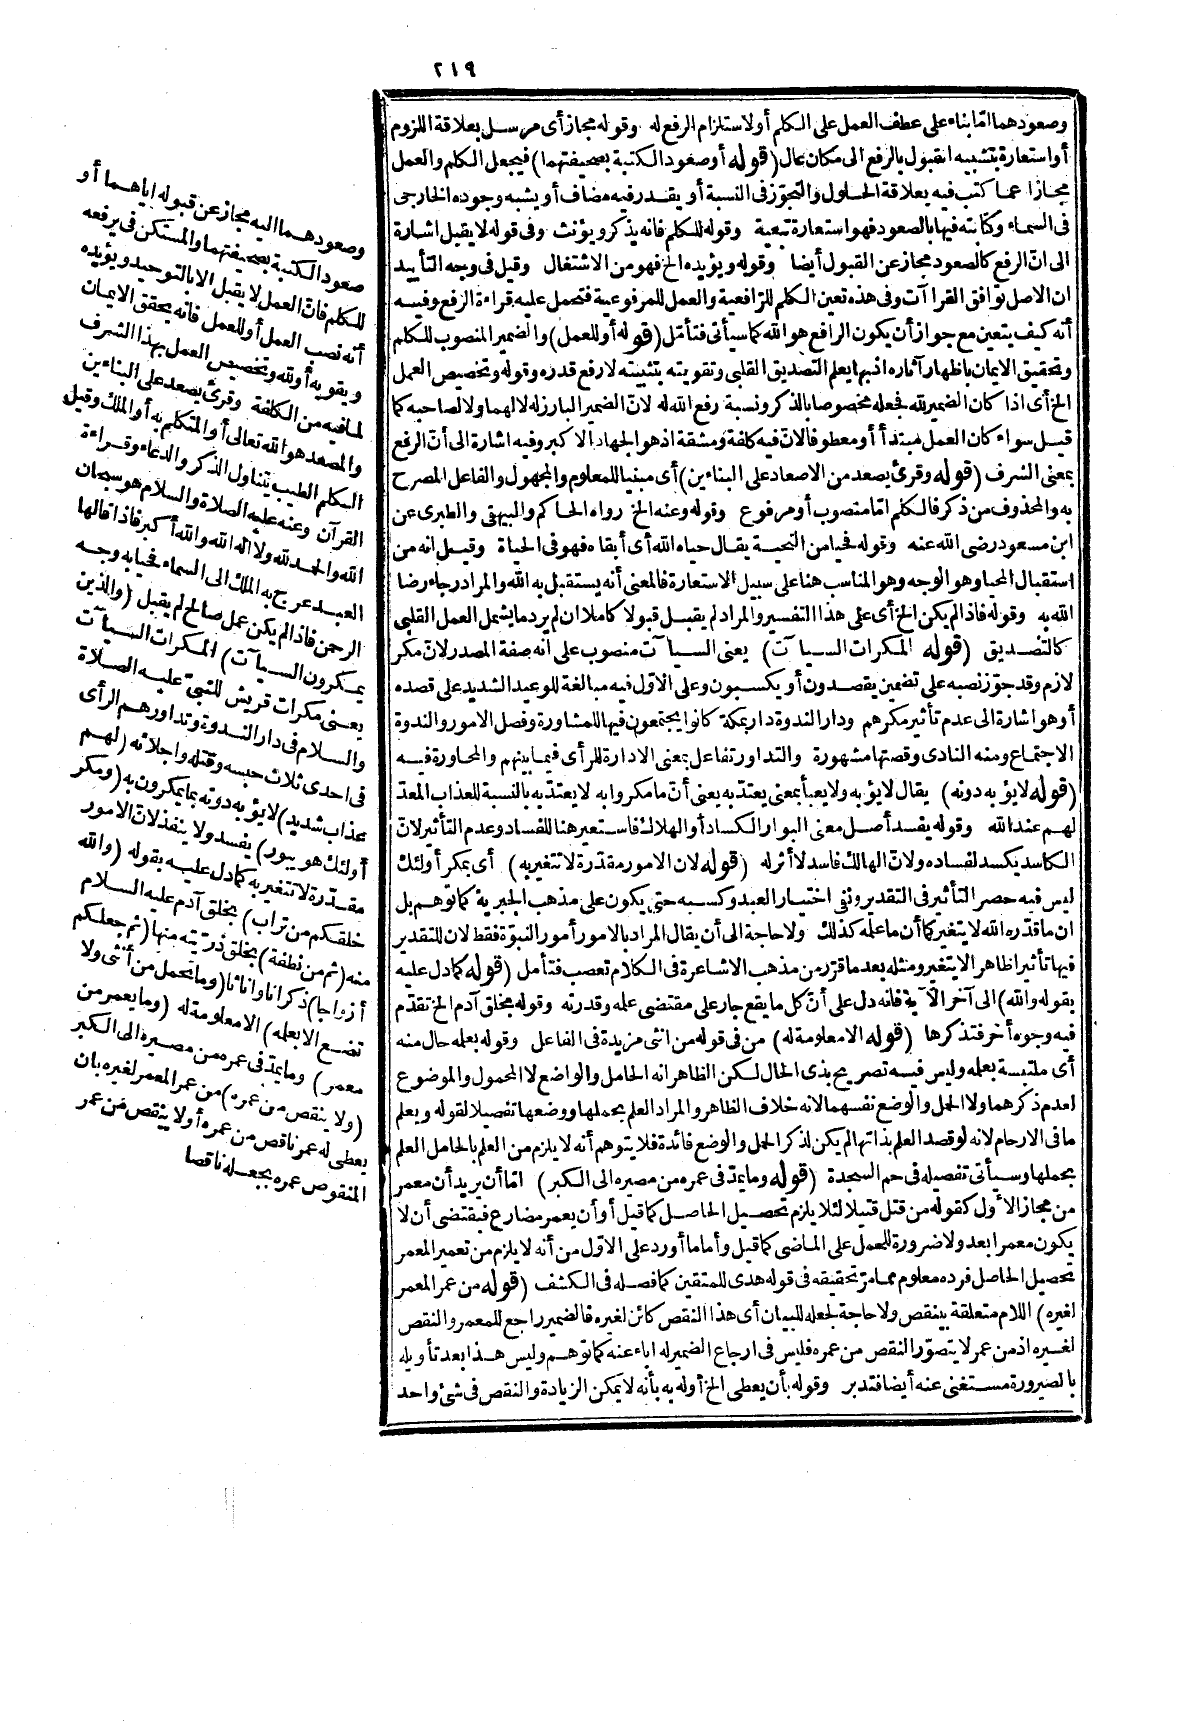 ٢١٩
وصعودهما اما بناء على عطف العمل على الكلم أو لاستلزام الرفع له وقوله مجاز أى مرسل بعلاقة اللزوم
أو استعارة بتشبيه القبول بالرفع الى مكان عال (قوله أو صعود الكتبة بصحيفتهما) فيجعل الكلم والعمل
مجازا عما كتب فيه بعلاقة الحلول والتجوّز فى النسبة أو يقدر فيه مضاف أو يشبه وجوده الخارجى
فى السماء وكتابته فيها بالصعود فهو استعارة تبعية وقوله للكلم فانه يذكر ويؤنث وفى قوله لا يقبل اشارة
الى انّ الرفع كالصعود مجاز عن القبول أيضا وقوله ويؤيده الخ فهو من الاشتغال وقيل فى وجه التأييد
ان الاصل توافق القرا آت وفى هذه تعين الكلم للرافعية والعمل للمرفوعية فتحمل عليه قراءة الرفع وفيه
أنه كيف يتعين مع جواز أن يكون الرافع هو الله كما سيأتى فتأمل (قوله أو للعمل) والضمير المنصوب للكلم
وتحقيق الايمان باظهار آثاره اذ بها يعلم التصديق القلبى وتقويته بتثبيته لا رفع قدره وقوله وتخصيص العمل
الخ أى اذا كان الضمير لله فجعله مخصوصا بالذكر ونسبة رفع الله له لانّ الضمير البارز له لا لهما ولا لصاحبه كما
قيل سواء كان العمل مبتدأ أو معطوفا لانّ فيه كلفة ومشقة اذ هو الجهاد الاكبر وفيه اشارة الى أنّ الرفع
بمعنى الشرف (قوله وقرئ يصعد من الاصعاد على البناءين) أى مبنيا للمعلوم والمجهول والفاعل المصرح
به والمحذوف من ذكر فالكلم امّا منصوب أو مرفوع وقوله وعنه الخ رواه الحاكم والبيهقى والطبرى عن
ابن مسعود رضى الله عنه وقوله فحيا من التحية يقال حياه الله أى أبقاه فهو فى الحياة وقيل انه من
استقبال المحيا وهو الوجه وهو المناسب هنا على سبيل الاستعارة فالمعنى أنه يستقبل به الله والمراد رجاء رضا
الله به وقوله فاذا لم يكن الخ أى على هذا التفسير والمراد لم يقبل قبولا كاملا ان لم يرد ما يشمل العمل القلبى
كالتصديق (قوله المكرات السيآت) يعنى السيآت منصوب على انه صفة المصدر لانّ مكر
لازم وقد جوّز نصبه على تضمين يقصدون أو يكسبون وعلى الاوّل فيه مبالغة للوعيد الشديد على قصده
أو هو اشارة الى عدم تأثير مكرهم ودار الندوة دار بمكة كانوا يجتمعون فيها للمشاورة وفصل الامور والندوة
الاجتماع ومنه النادى وقصتها مشهورة والتداور تفاعل بمعنى الادارة للرأى فيما بينهم والمحاورة فيه
(قوله لا يؤبه دونه) يقال لا يؤبه ولا يعبأ بمعنى يعتدّ به يعنى أنّ ما مكروا به لا يعتدّ به بالنسبة للعذاب المعدّ
لهم عند الله وقوله يفسد أصل معنى البوار الكساد أو الهلاك فاستعير هنا للفساد وعدم التأثير لانّ
الكاسد يكسد لفساده ولانّ الهالك فاسد لا أثر له (قوله لان الامور مقدّرة لا تتغير به) أى بمكر أولئك
ليس فيه حصر التأثير فى التقدير ونفى اختيار العبد وكسبه حتى يكون على مذهب الجبرية كما توهم بل
ان ما قدّره الله لا يتغير كما أن ما علمه كذلك ولا حاجة الى أن يقال المراد بالامور أمور النبوّة فقط لان للتقدير
فيها تأثيرا ظاهرا لا يتغير ومثله بعد ما قرّر من مذهب الاشاعرة فى الكلام تعصب فتأمل (قوله كما دل عليه
بقوله والله) الى آخر الآية فانه دل على أنّ كل ما يقع جار على مقتضى علمه وقدرته وقوله بخلق آدم الخ تقدّم
فيه وجوه أخر فتذكرها (قوله الا معلومة له) من فى قوله من انثى مزيدة فى الفاعل وقوله بعلمه حال منه
أى ملتبسة بعلمه وليس فيه تصريح بذى الحال لكن الظاهر انه الحامل والواضع لا المحمول والموضوع
لعدم ذكرهما ولا الحمل والوضع نفسهما لانه خلاف الظاهر والمراد العلم بحملها ووضعها تفصيلا لقوله ويعلم
ما فى الارحام لانه لو قصد العلم بذاتها لم يكن لذكر الحمل والوضع فائدة فلا يتوهم أنه لا يلزم من العلم بالحامل العلم
بحملها وسيأتى تفصيله فى حم السجدة (قوله وما يمدّ فى عمره من مصيره الى الكبر) امّا أن يريد أن معمر
من مجاز الأول كقوله من قتل قتيلا لئلا يلزم تحصيل الحاصل كما قيل أو أن يعمر مضارع فيقتضى أن لا
يكون معمرا بعد ولا ضرورة للحمل على الماضى كما قيل وأما ما أورد على الاوّل من أنه لا يلزم من تعمير المعمر
تحصيل الحاصل فرده معلوم مما مرّ تحقيقه فى قوله هدى للمتقين كما فصله فى الكشف (قوله من عمر المعمر
لغيره) اللام متعلقة بينقص ولا حاجة لجعله للبيان أى هذا النقص كائن لغيره فالضمير راجع للمعمر والنقص
لغيره اذ من عمر لا يتصوّر النقص من عمره فليس فى ارجاع الضمير له اباء عنه كما توهم وليس هذا بعد تأويله
بالصيرورة مستغنى عنه أيضا فتدبر وقوله بأن يعطى الخ أوله به بأنه لا يمكن الزيادة والنقص فى شئ واحد
وصعودهما اليه مجاز عن قبوله اياهما أو
صعود الكتبة بصحيفتهما والمستكن فى يرفعه
للكلم فانّ العمل لا يقبل الا بالتوحيد ويؤيده
أنه نصب العمل أو للعمل فانّه يحقق الايمان
ويقويه أو لله وتخصيص العمل بهذا الشرف
لما فيه من الكلفة وقرئ يصعد على البناءين
والمصعد هو الله تعالى أو المتكلم به أو الملك وقيل
الكلم الطيب يتناول الذكر والدعاء وقراءة
القرآن وعنه عليه الصلاة والسلام هو سبحان
الله والحمد لله ولا اله الا الله والله أكبر فاذا قالها
العبد عرج به الملك الى السماء فحيا به وجه
الرحمن فاذا لم يكن عمل صالح لم يقبل (والذين
يمكرون السيآت) المكرات السيآت
يعنى مكرات قريش للنبىّ عليه الصلاة
والسلام فى دار الندوة وتداورهم الرأى
فى احدى ثلاث حبسه وقتله واجلائه (لهم
عذاب شديد) لا يؤبه دونه بما يمكرون به (ومكر
أولئك هو يبور) يفسد ولا ينفذ لان الامور
مقدّرة لا تتغير به كما دل عليه بقوله (والله
خلقكم من تراب) بخلق آدم عليه السلام
منه (ثم من نطفة) بخلق ذرّيته منها (ثم جعلكم
أزواجا) ذكرانا واناثا (وما تحمل من أنثى ولا
تضع الا بعلمه) الا معلومة له (وما يعمر من
معمر) وما يمدّ فى عمره من مصيره الى الكبر
(ولا ينقص من عمره) من عمر المعمر لغيره بان
يعطى له عمر ناقص من عمره أو لا ينقص من عمر
المنقوص عمره بجعله ناقصا